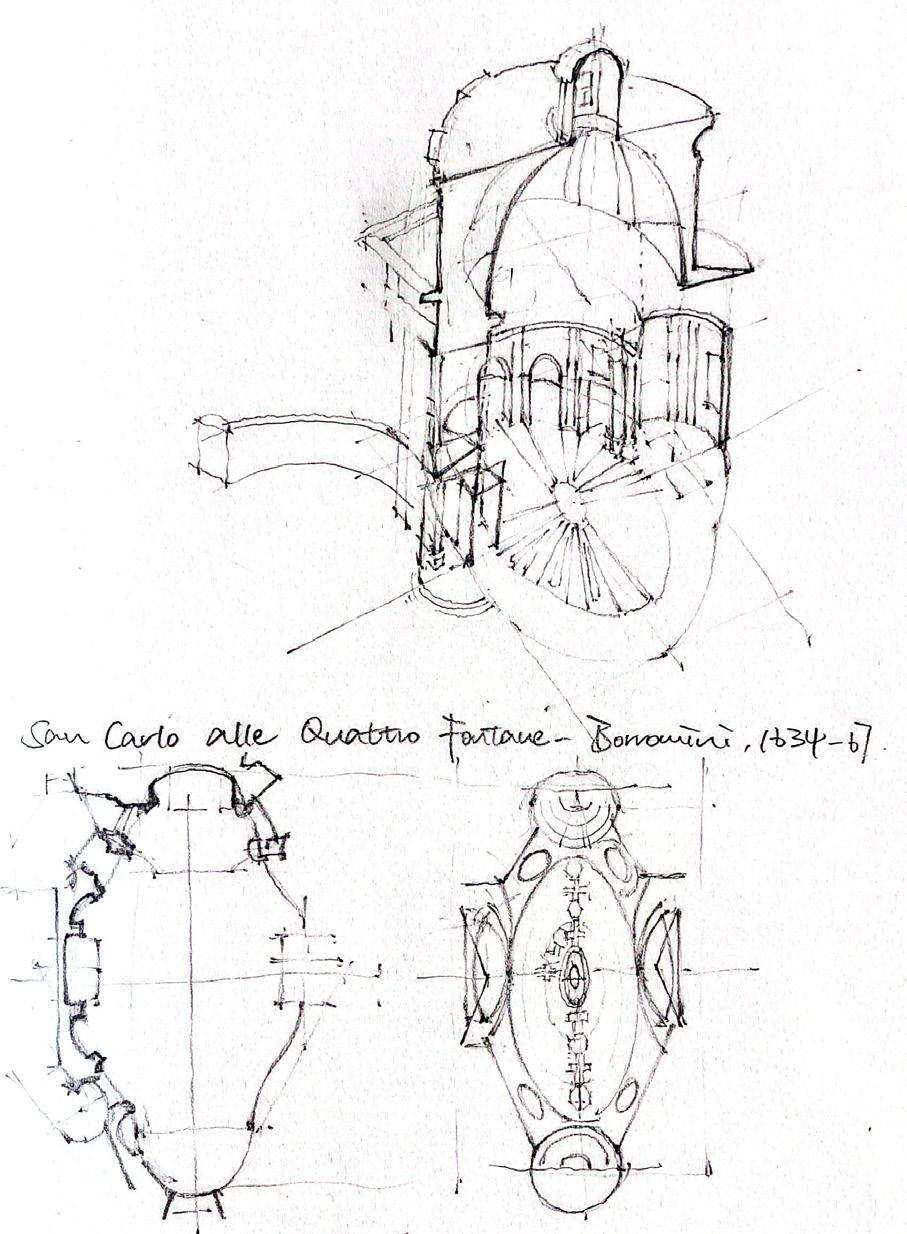 San Carlo alle Quattro Fontane - Borromini, 1634-67.